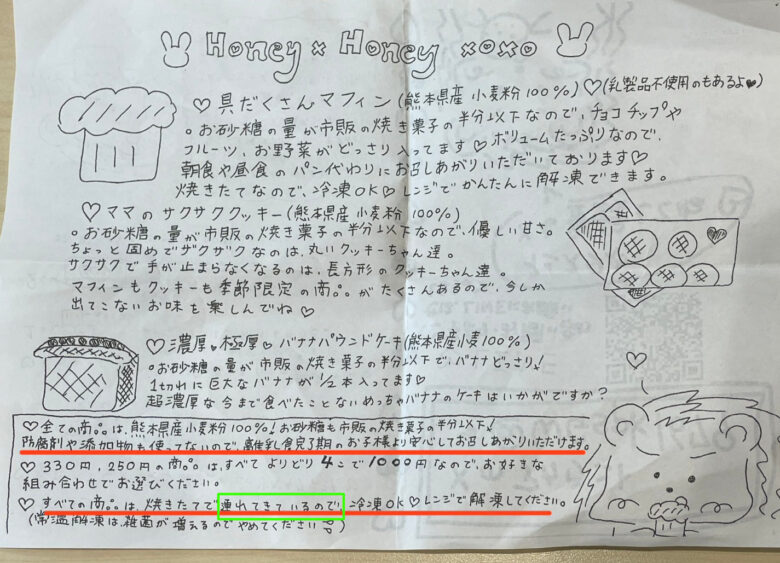 Honey × Honey xoxo
♡具だくさんマフィン(熊本県産小麦粉100%)♡(乳製品不使用のもあるよ♥)
。お砂糖の量が市販の焼き菓子の半分以下なので、チョコチップや
フルーツ、お野菜がどっさり入ってます♡ボリュームたっぷりなので、
朝食や昼食のパン代わりにお召しあがりいただいております♡
焼きたてなので、冷凍OK♡レンジでかんたんに解凍できます。
♡ママのサクサククッキー(熊本県産小麦粉100%)
。お砂糖の量が市販の焼き菓子の半分以下なので、優しい甘さ。
ちょっと固めでザクザクなのは、丸いクッキーちゃん達。
サクサクで手が止まらなくなるのは、長方形のクッキーちゃん達。
マフィンもクッキーも季節限定の商品がたくさんあるので、今しか
出てこないお味を楽しんでね♡
♡濃厚♥極厚♥バナナパウンドケーキ(熊本県産小麦100%)
。お砂糖の量が市販の焼き菓子の半分以下で、バナナどっさり!
1切れに巨大なバナナが1/2本入ってます♡
超濃厚な今まで食べたことないめっちゃバナナのケーキはいかがですか?
♡全ての商品は、熊本県産小麦粉100%!お砂糖も市販の焼き菓子の半分以下!
防腐剤や添加物も使ってないので、離乳食完了期のお子様より安心してお召しあがりいただけます。
♡330円,250円の商品は、すべてよりどり4こで1000円なので、お好きな
組み合わせでお選びください。
♡すべての商品は、焼きたてで連れてきているので、冷凍OK♡レンジで解凍してください。
(常温解凍は雑菌が増えるのでやめてください)